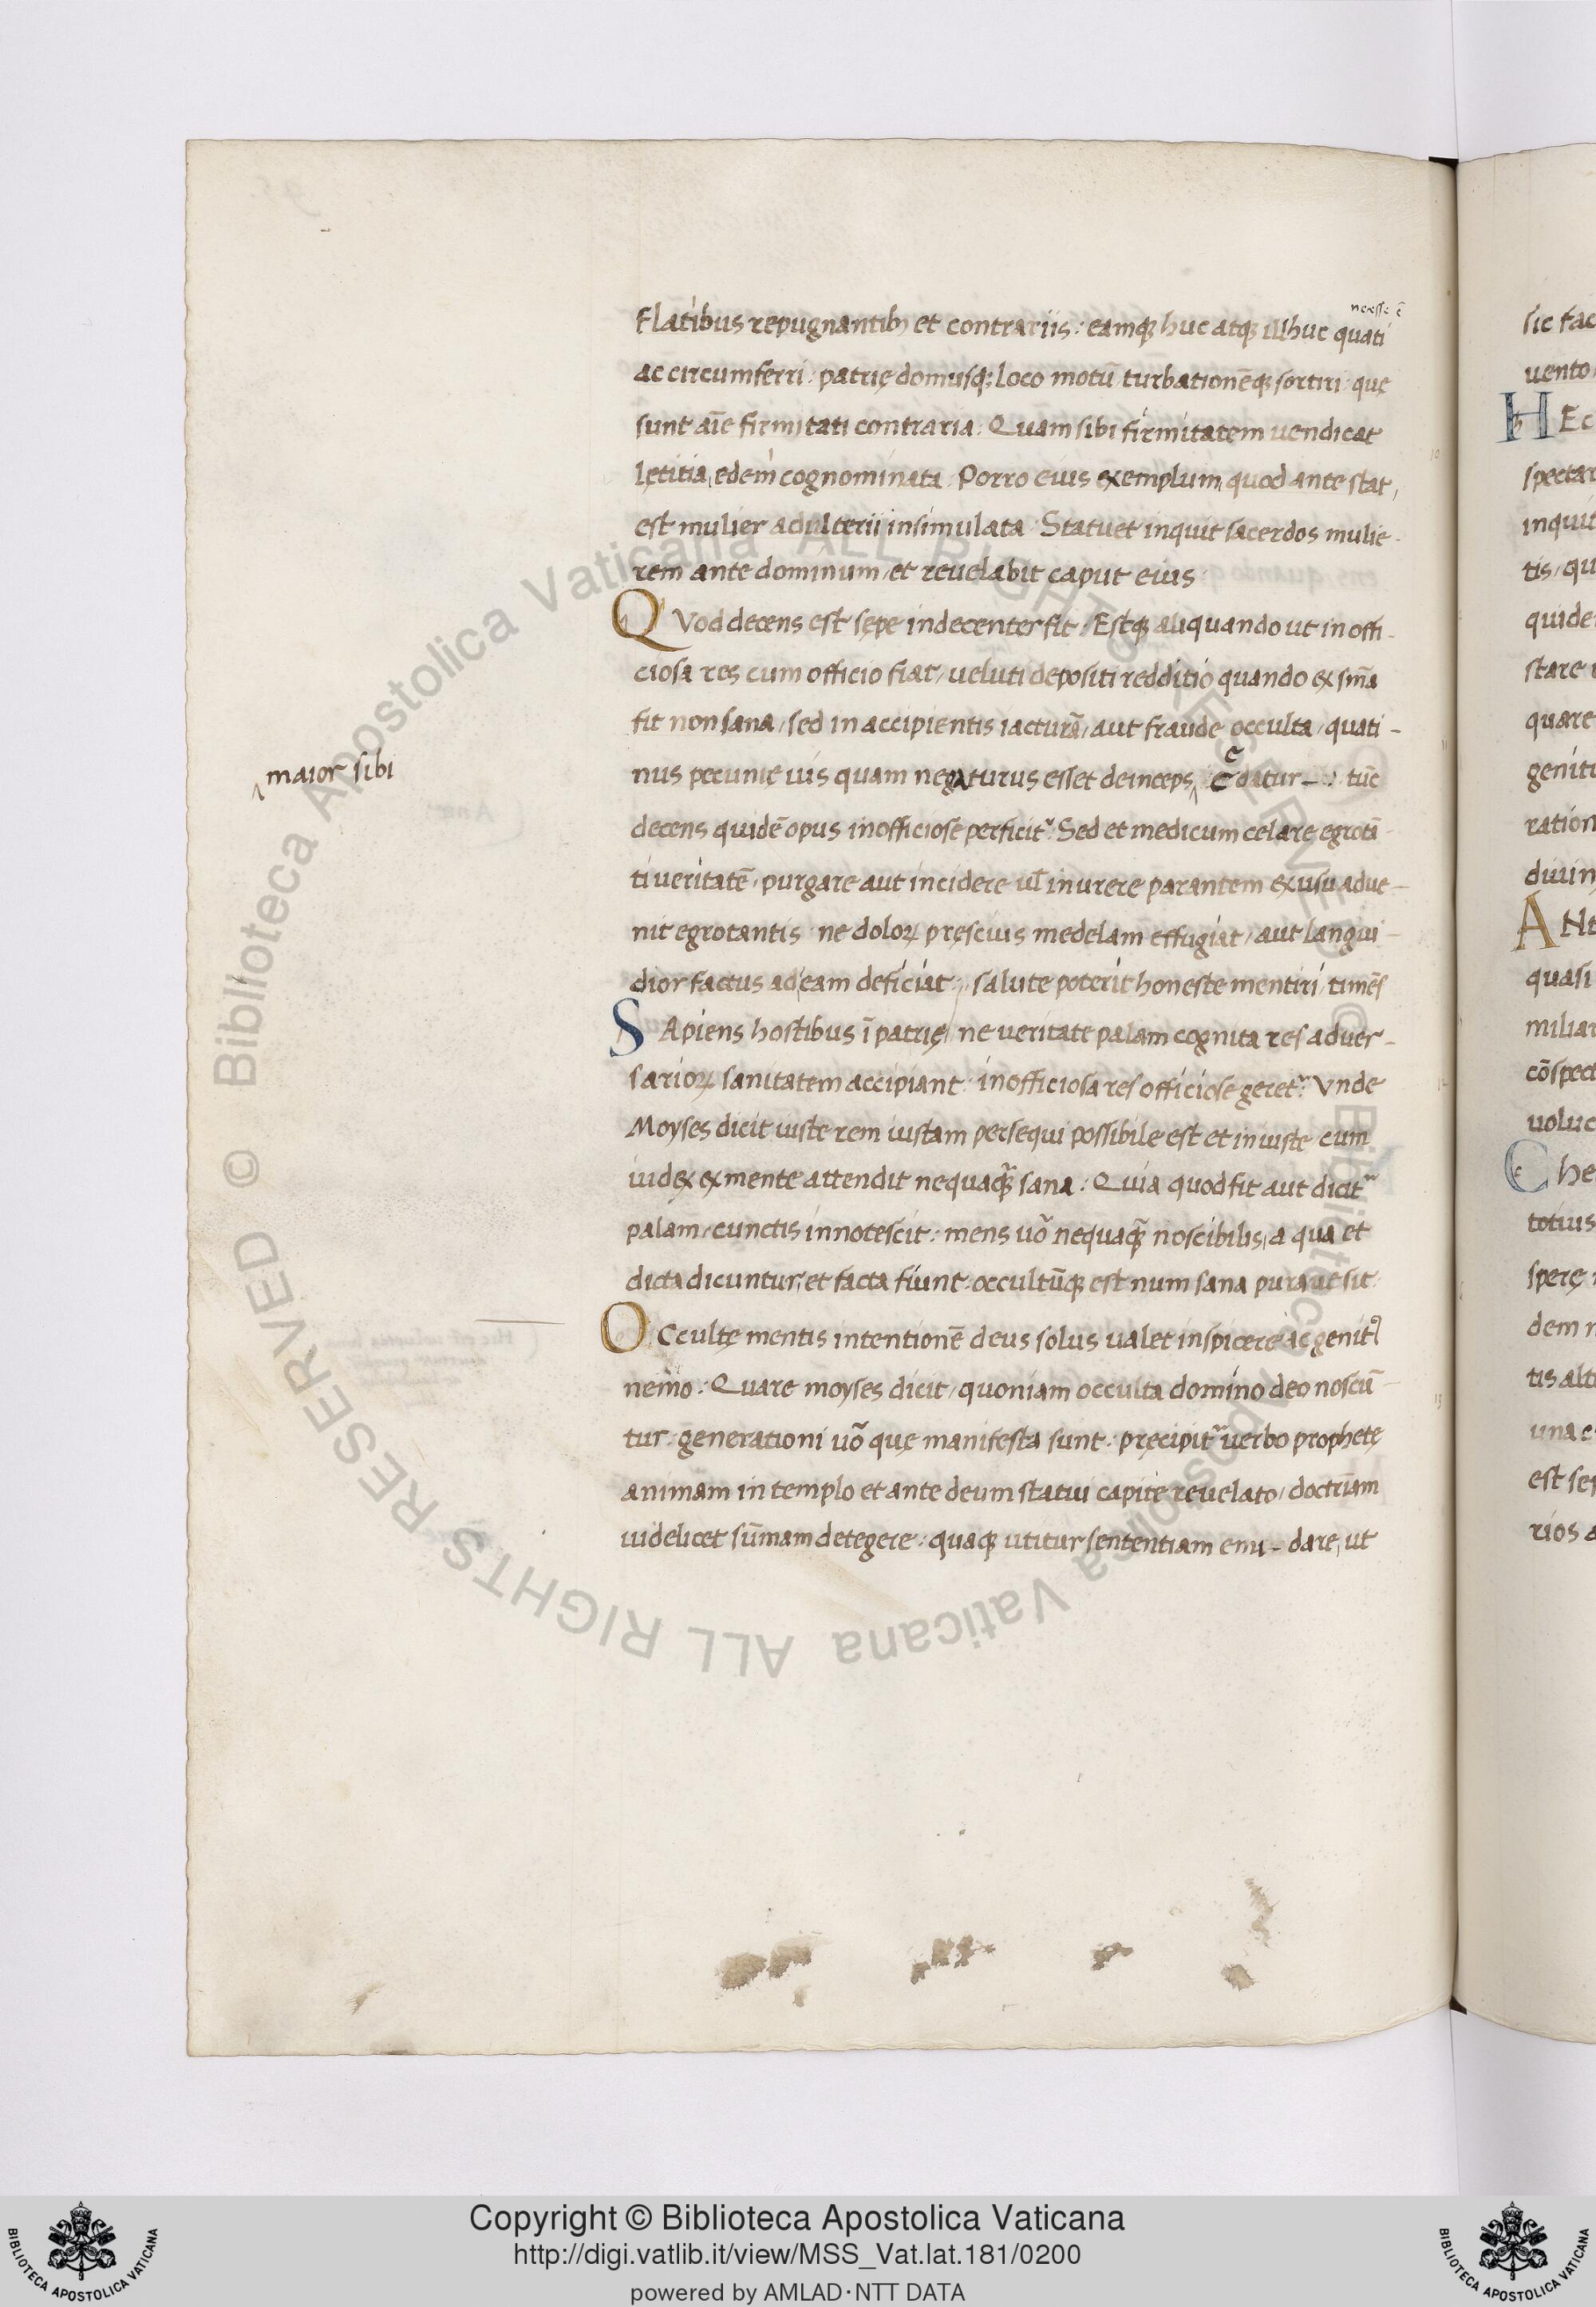 necesse ē
Flatibus repugnantib3 et contrariis: eamq3 huc atq3 illhuc quati
ac circumferri: patrię domusq3: loco motū turbationēq3 sortiri: quę
sunt aīe firmitati contraria: Quam sibi firmitatem uendicat
lętitia, edem cognominata. Porro eius exemplum, quod ante stat,
est mulier adulterii insimulata. Statuet inquit sacerdos mulie-
rem ante dominum/et reuelabit caput eius
QVod decens est sępe indecenter fit. Estq3 aliquando ut in offi-
ciosa res cum officio fiat, ueluti depositi redditio quando ex sm̄a
fit non sana, sed in accipientis iacturā, aut fraude occulta, quati-
maior sibi
nus pecunię uis quam negaturus esset deinceps datur tūc
decens quidē opus inofficiose perficitr. Sed et medicum celare egrotā-
ti ueritatē, purgare aut incidere ul' inurere parantem ex usu adue-
nit egrotantis ne doloꝝ pręscius medelam effugiat, aut langui-
dior factus ad eam deficiat: salute poterit honeste mentiri, timēs
SApiens hostibus ī patrię, ne ueritate palam cognita res aduer-
sarioꝝ sanitatem accipiant: inofficiosa res officiose geretr: Vnde
Moyses dicit iuste rem iustam persequi possibile est et iniuste cum
iudex ex mente attendit nequaq̄3 sana: Quia quod fit aut dicitr
palam, cunctis innotescit: mens uō nequaq̄3 noscibilis, a qua et
dicta dicuntur, et facta fiunt. occultūq3 est num sana pura ut sit.
OCcultę mentis intentionē deus solus ualet inspicere ac genit9
nemo: Quare moyses dicit, quoniam occulta domino deo noscū-
tur: generationi uō quę manifesta sunt: pręcipitr uerbo prophetę
animam in templo et ante deum statui capite reuelato, doctrinam
uidelicet sūmam detegere: quaq3 utitur sententiam enu-dare, ut
sic fac
uento
HEc
inquit
tis, qu
quide
stare
quare
genit
ration
diuin
ANt
quasi
miliar
cōspect
uoluc
Che
totius
sperę
dem
tis alt
una
est sep
rios a
Copyright © Biblioteca Apostolica Vaticana
http://digi.vatlib.it/view/MSS_Vat.lat.181/0200
powered by AMLAD·NTT DATA
BIBLIOTECA APOSTOLICA VATICANA
BIBLIOTECA APOSTOLICA VATICANA
© Biblioteca Apostolica Vaticana ALL RIGHTS RESERVED © Biblioteca Apostolica Vaticana ALL RIGHTS RESERVED